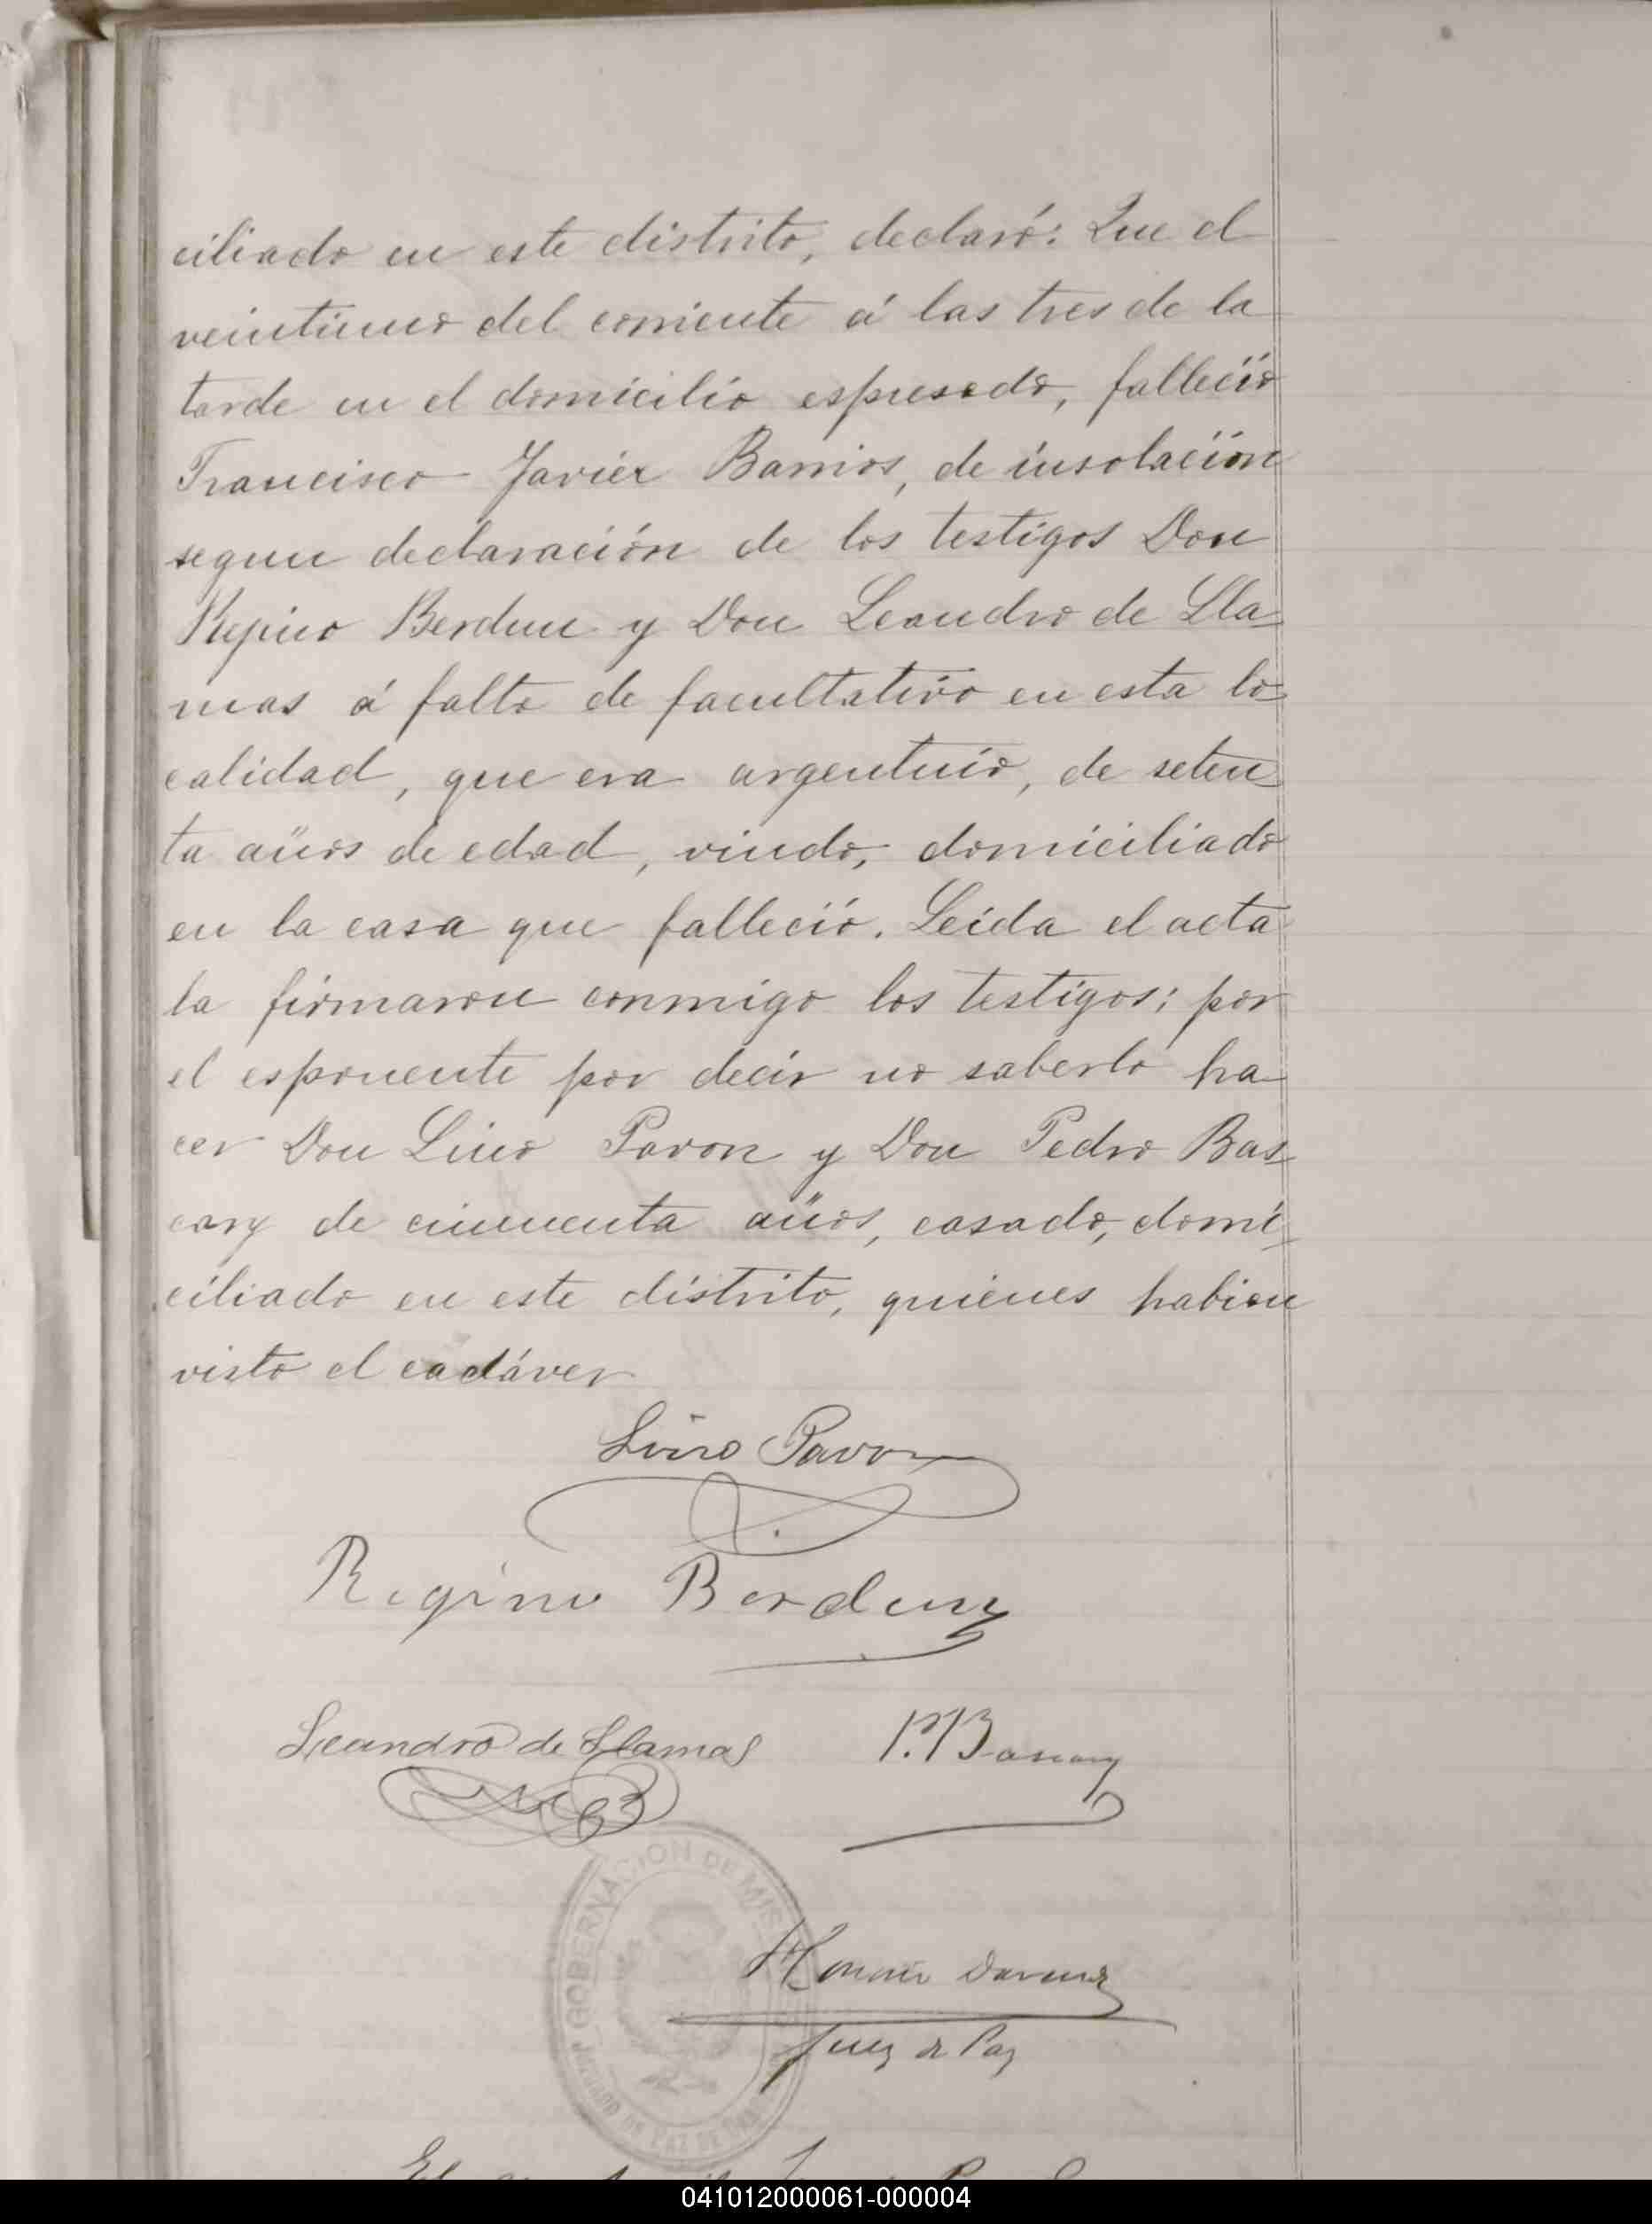 ciliado en este distrito, declaró: Que el
veintiuno del corriente á las tres de la
tarde en el domicilio espresado, falleció
Francisco Javier Barrios, de insolación
segun declaración de los testigos Don
Rejino Berdun y Don Leandro de Lla=
mas á falta de facultativo en esta lo=
calidad, que era argentino, de seten
ta años de edad, viudo, domiciliado
en la casa que falleció. Leida el acta
la firmaron conmigo los testigos; por
el esponente por decir no saberlo ha=
cer Don Lino Pavon y Don Pedro Bas=
cary de cincuenta años, casado, domi=
ciliado en este distrito, quienes habian
visto el cadáver
Lino Pavon
Regino Berdun
Leandro de Llamas P. Bascary
GOBERNACION DE MIS
JUZGADO DE PAZ DE
Juez de Paz
041012000061-000004